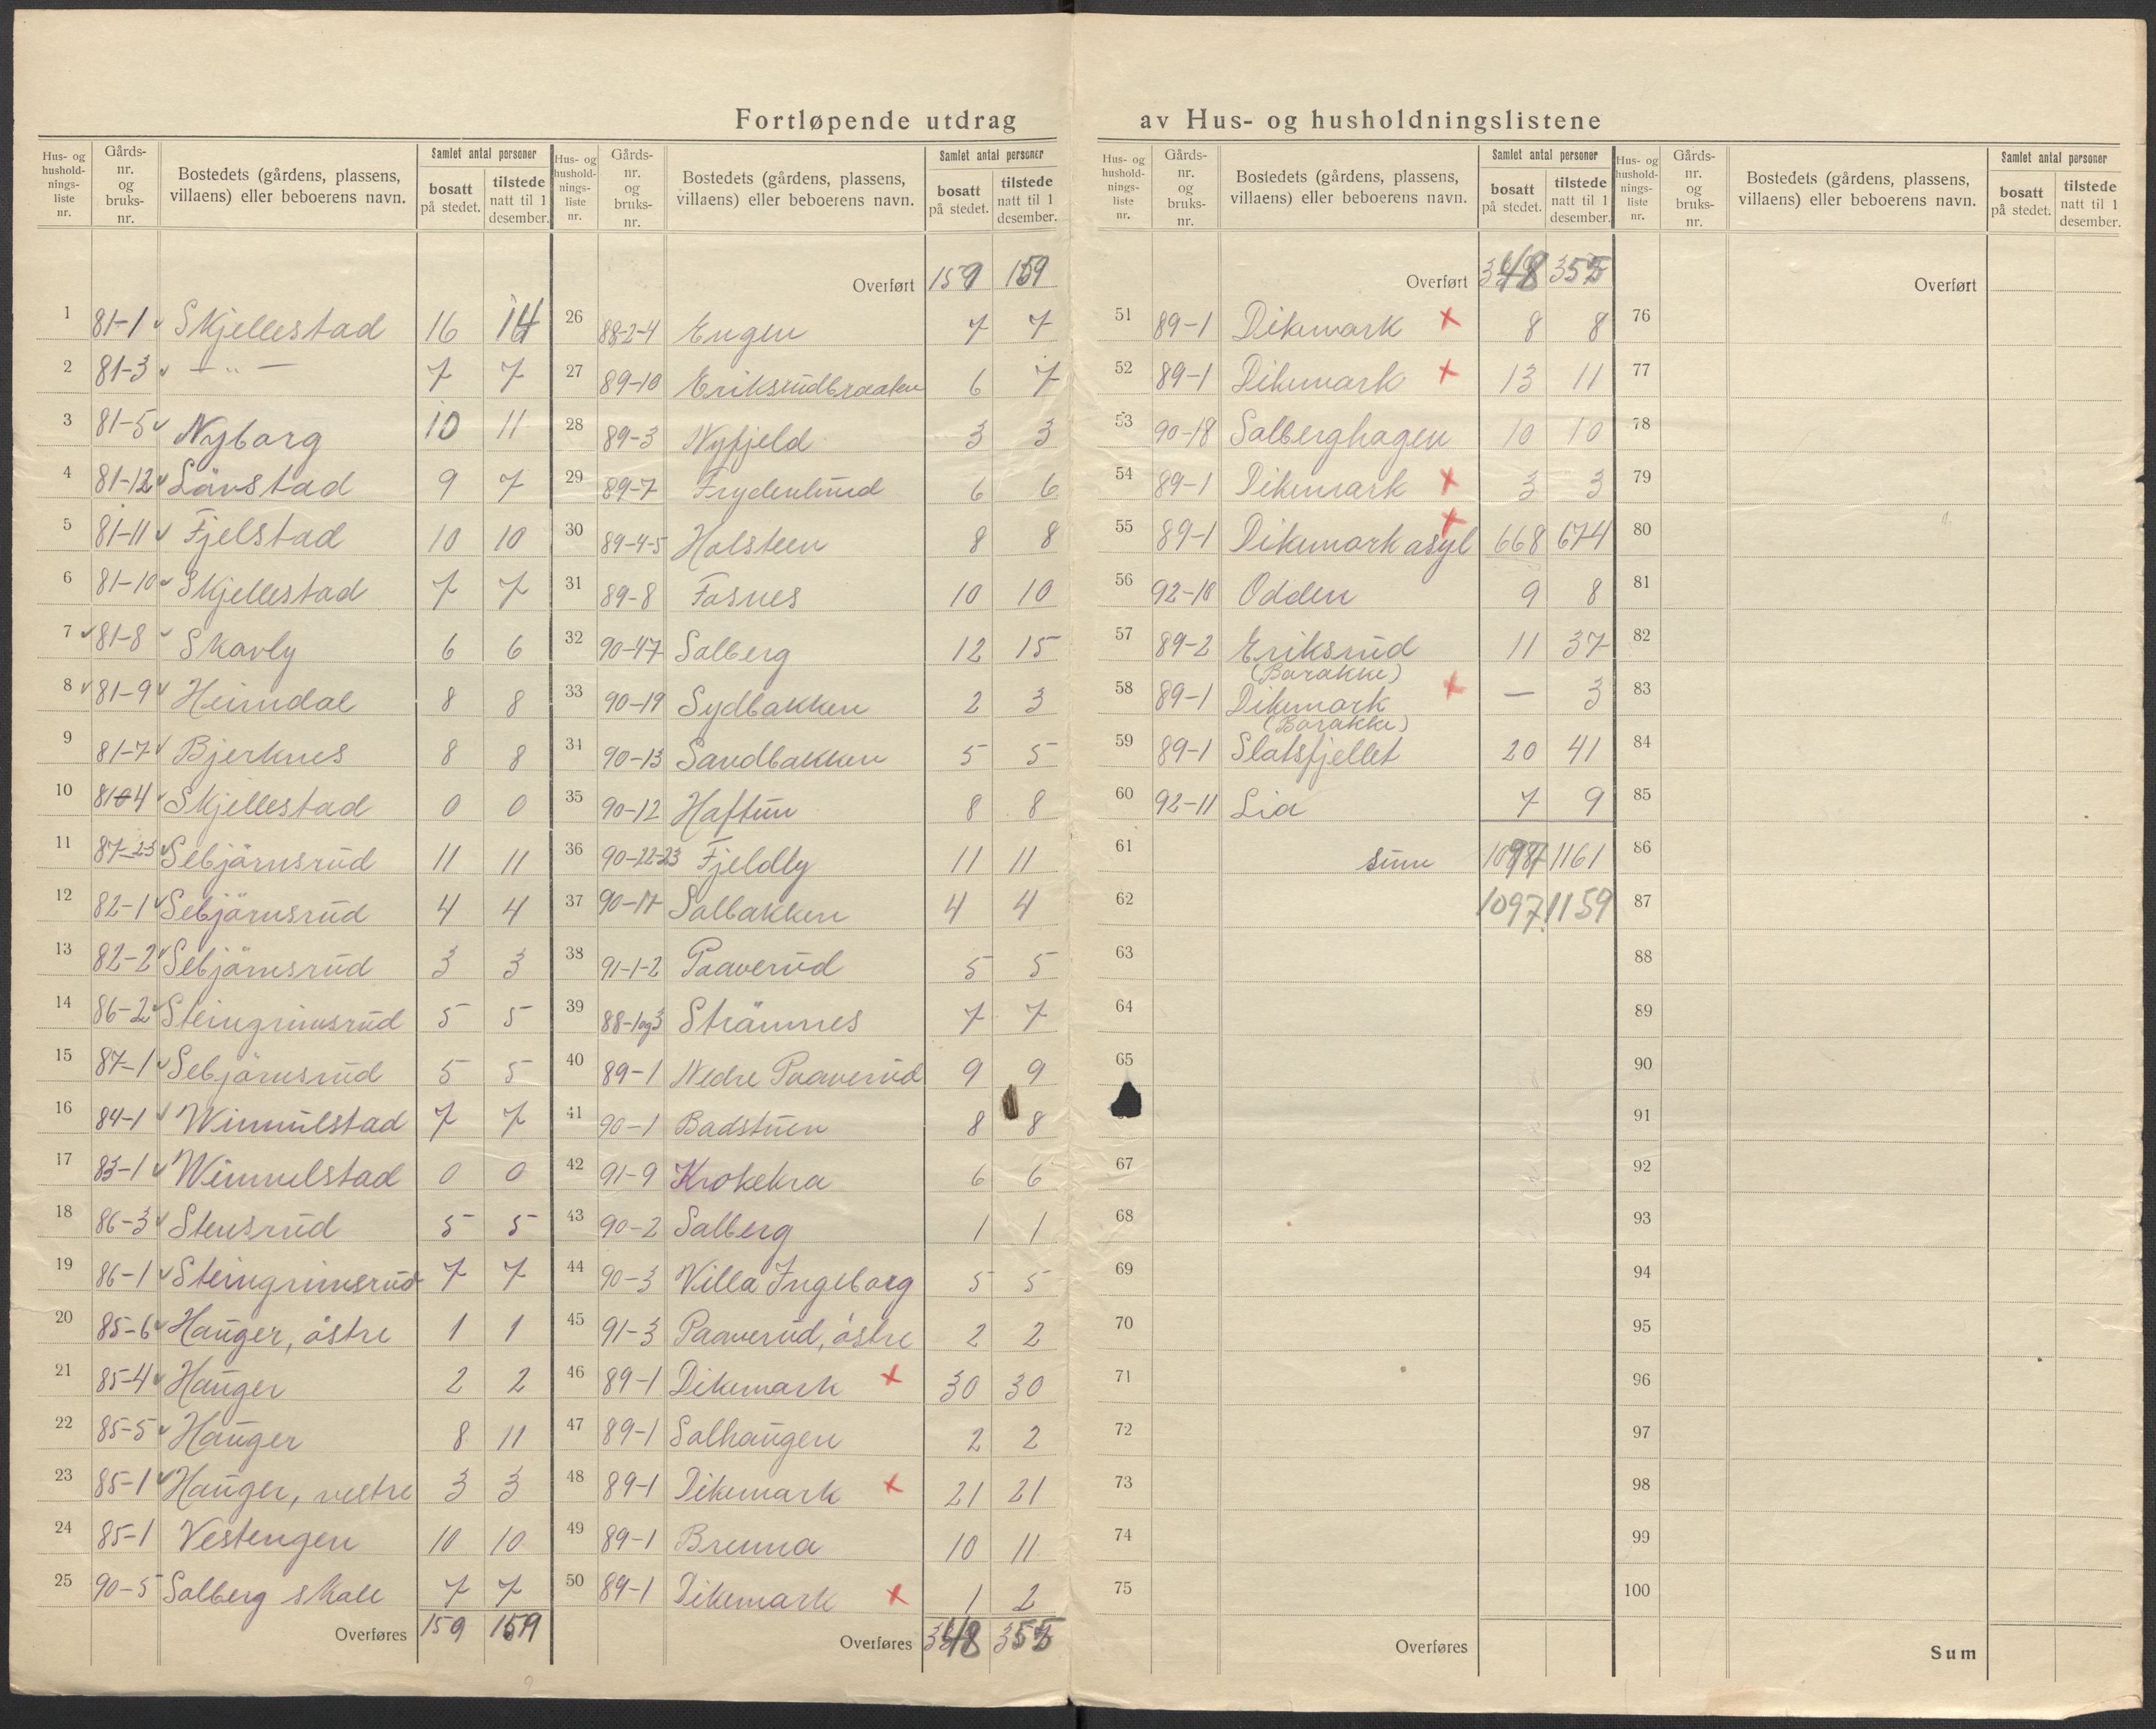 Fortløpende utdrag av Hus- og husholdningslistene
Hus- og husholdnings- liste nr. | Gårds- nr. og bruks- nr. | Bostedets (gårdens, plassens, villaens) eller beboerens navn. | Samlet antal personer | bosatt på stedet. | tilstede natt til 1 desember.
1 81-1 Skjellestad 16 14
2 81-3 — „ — 7 7
3 81-5 Nyborg 10 11
4 81-12 Lövstad 9 7
5 81-11 Fjelstad 10 10
6 81-10 Skjellestad 7 7
7 81-8 Skovly 6 6
8 81-9 Heimdal 8 8
9 81-7 Bjerknes 8 8
10 81-4 Skjellestad 0 0
11 87-23 Sebjörnsrud 11 11
12 82-1 Sebjörnsrud 4 4
13 82-2 Sebjörnsrud 3 3
14 86-2 Steingrimsrud 5 5
15 87-1 Sebjörnsrud 5 5
16 84-1 Wimmelstad 7 7
17 83-1 Wimmelstad 0 0
18 86-3 Stensrud 5 5
19 86-1 Steingrimsrud 7 7
20 85-6 Hauger, östre 1 1
21 85-4 Hauger 2 2
22 85-5 Hauger 8 11
23 85-1 Hauger, vestre 3 3
24 85-1 Vestengen 10 10
25 90-5 Solberg skole 7 7
Overføres 159 159
Hus- og husholdnings- liste nr. | Gårds- nr. og bruks- nr. | Bostedets (gårdens, plassens, villaens) eller beboerens navn. | Samlet antal personer | bosatt på stedet. | tilstede natt til 1 desember.
Overført 159 159
26 88-2-4 Engen 7 7
27 89-10 Eriksrudbraaten 6 7
28 89-3 Nyfjeld 3 3
29 89-7 Frydenlund 6 6
30 89-4-5 Holsteen 8 8
31 89-8 Fosnes 10 10
32 90-47 Solberg 12 15
33 90-19 Sydbakken 2 3
34 90-13 Sandbakken 5 5
35 90-12 Haftun 8 8
36 90-22-23 Fjeldly 11 11
37 90-17 Solbakken 4 4
38 91-1-2 Paaverud 5 5
39 88-1og3 Strömnes 7 7
40 89-1 Nedre Paaverud 9 9
41 90-1 Badstuen 8 8
42 91-9 Krokekra 6 6
43 90-2 Solberg 1 1
44 90-3 Villa Ingeborg 5 5
45 91-3 Paaverud, östre 2 2
46 89-1 Dikemark × 30 30
47 89-1 Solhaugen 2 2
48 89-1 Dikemark × 21 21
49 89-1 Brenna 10 11
50 89-1 Dikemark × 1 2
Overføres 348 355
Hus- og husholdnings- liste nr. | Gårds- nr. og bruks- nr. | Bostedets (gårdens, plassens, villaens) eller beboerens navn. | Samlet antal personer | bosatt på stedet. | tilstede natt til 1 desember.
Overført 348 355
51 89-1 Dikemark × 8 8
52 89-1 Dikemark × 13 11
53 90-18 Solberghagen 10 10
54 89-1 Dikemark × 3 3
55 89-1 Dikemark asyl × 668 674
56 92-10 Odden 9 8
57 89-2 Eriksrud 11 37
(Barakke)
58 89-1 Dikemark × — 3
(Barakke)
59 89-1 Slatsfjellet 20 41
60 92-11 Lia 7 9
61 sum 1097 1161
62 1097 1159
63
64
65
67
68
69
70
71
72
73
74
75
Overføres
Hus- og husholdnings- liste nr. | Gårds- nr. og bruks- nr. | Bostedets (gårdens, plassens, villaens) eller beboerens navn. | Samlet antal personer | bosatt på stedet. | tilstede natt til 1 desember.
Overført
76
77
78
79
80
81
82
83
84
85
86
87
88
89
90
91
92
93
94
95
96
97
98
99
100
Sum